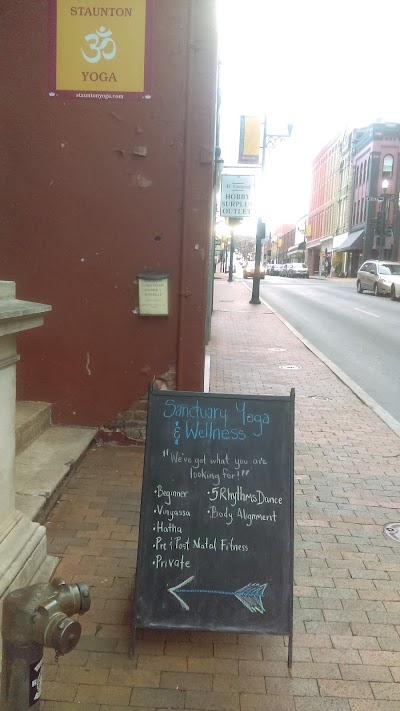 STAUNTON
ॐ
YOGA
stauntonyoga.com
HOBBY
SURPLUS
OUTLET
Sanctuary Yoga
& Wellness
"We've got what you are
looking for!"
• Beginner
• Vinyassa
• Hatha
• Pre & Post Natal Fitness
• Private
• 5RhythmsDance
• Body Alignment